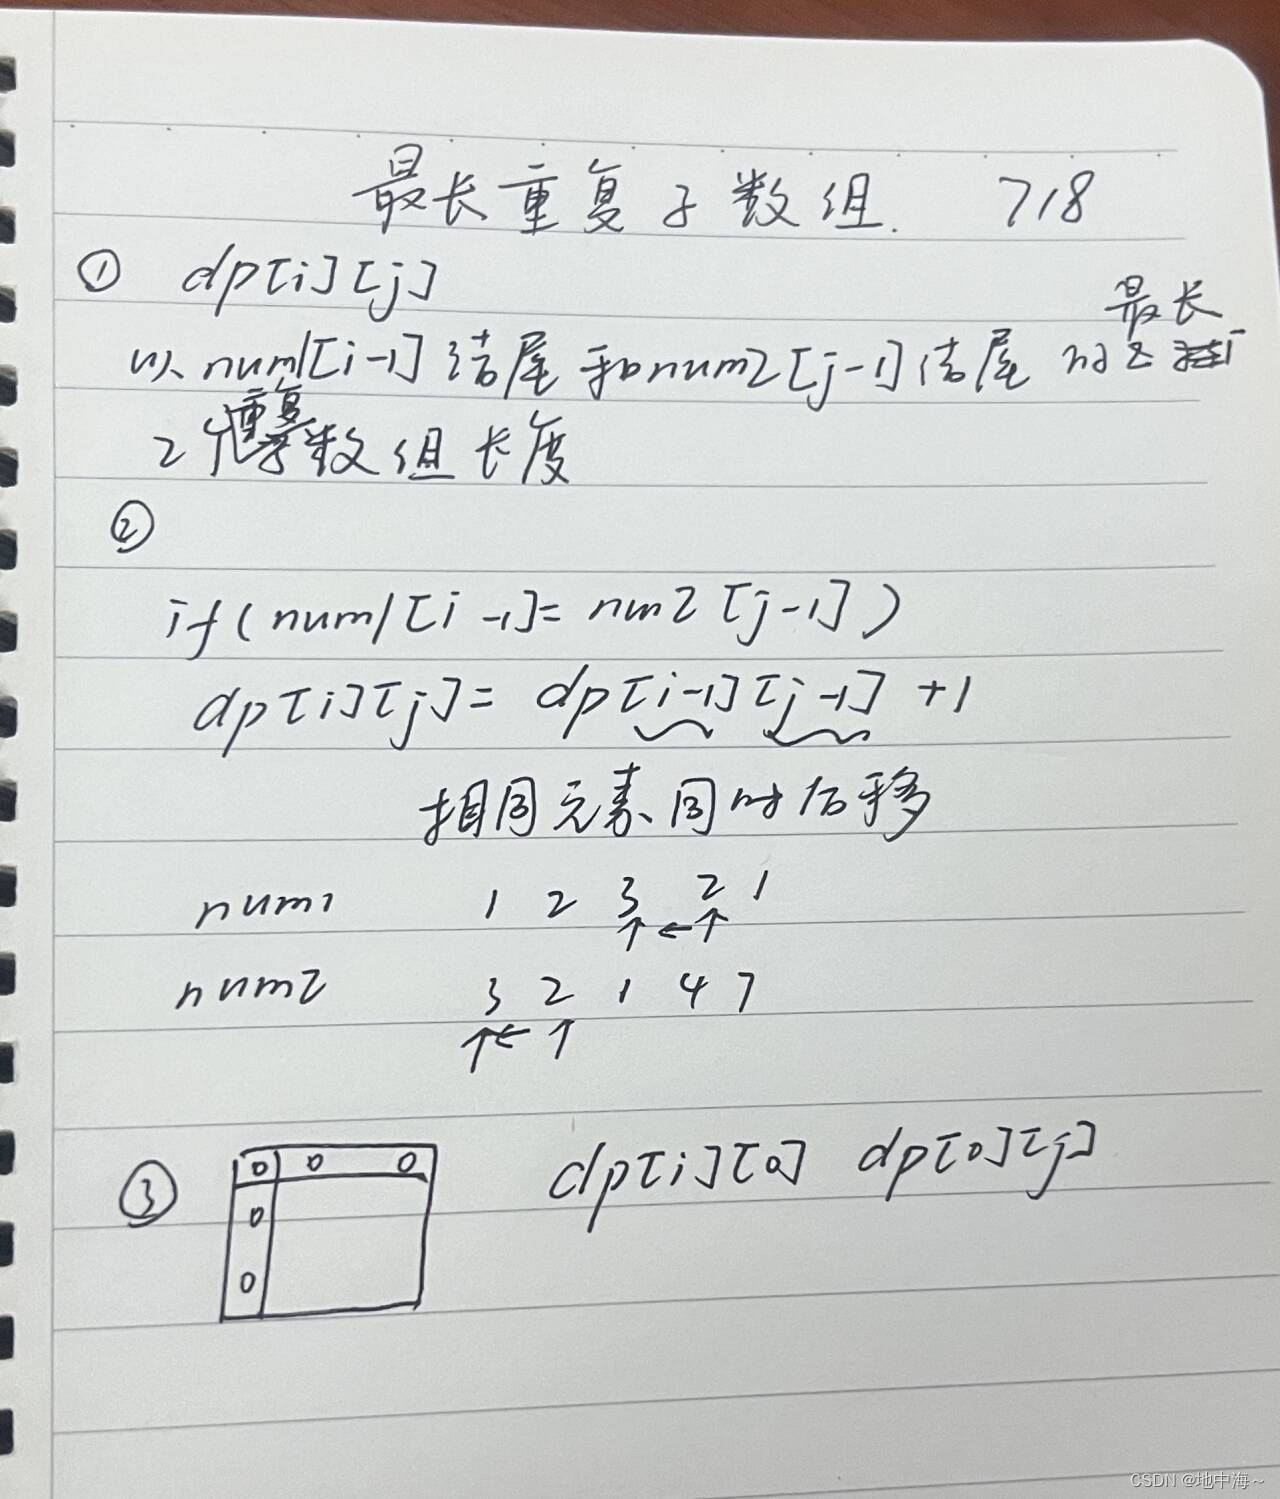 最长重复子数组. 718
① dp[i][j]
最长
以num1[i-1]结尾和num2[j-1]结尾的
重复
2个数组长度
②
if(num1[i-1]= num2[j-1])
dp[i][j]= dp[i-1][j-1] +1
相同元素同时后移
num1 1 2 3 2 1
↑ ← ↑
num2 3 2 1 4 7
↑ ← ↑
③ 0 0 0 dp[i][0] dp[0][j]
0
0
CSDN @地中海~